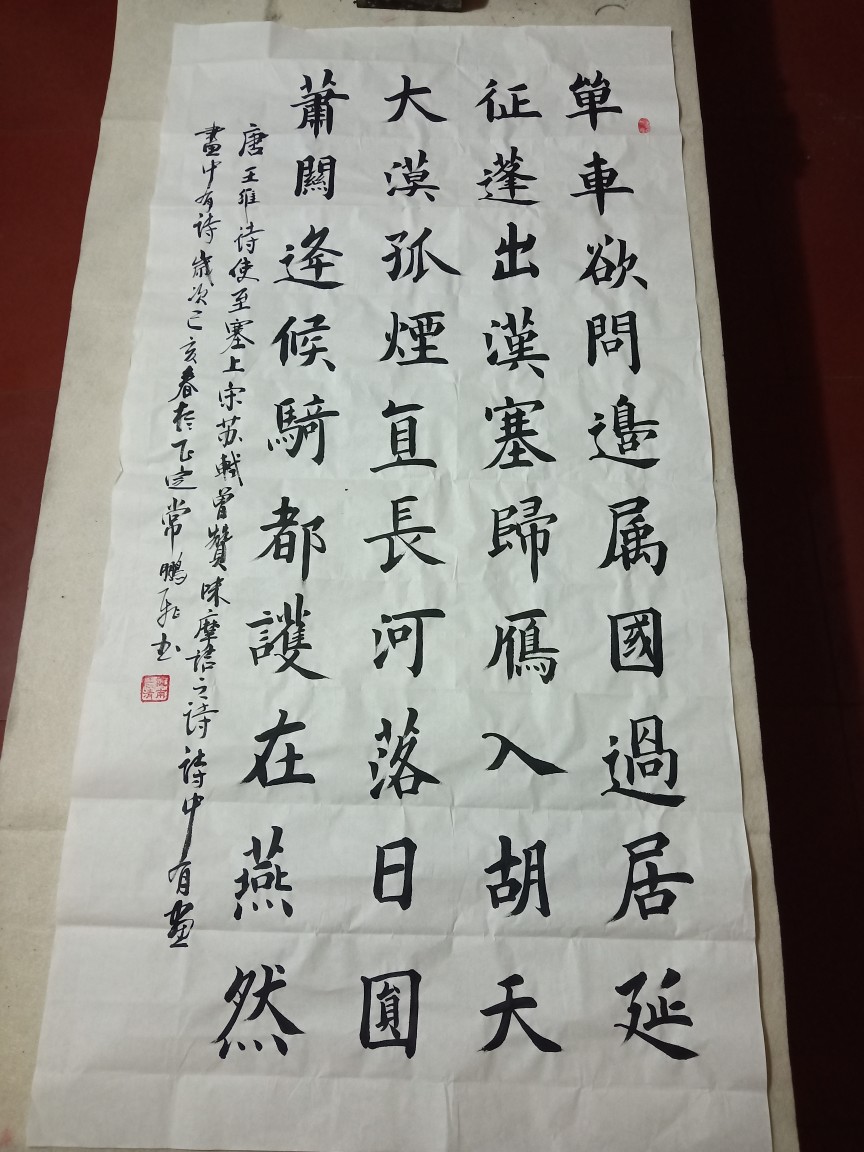 單車欲問邊属國過居延
征蓬出漢塞歸鴈入胡天
大漠孤煙直長河落日圓
蕭關逢候騎都護在燕然
唐王維詩使至塞上宋苏軾曾贊味摩詰之詩詩中有畫
畫中有詩歲次己亥春於正定常鵬飛书